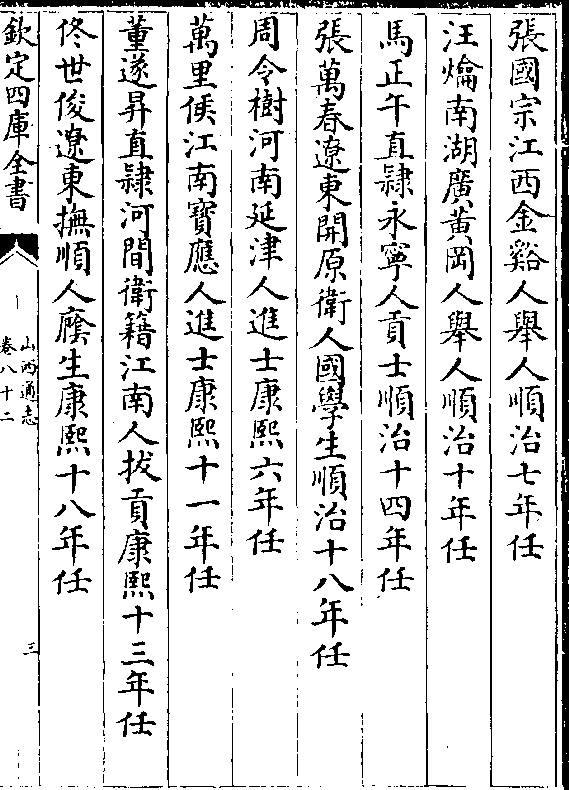 張國宗江西金谿人舉人順治七年任
汪爚南湖廣黃岡人舉人順治十年任
馬正午直隸永寧人貢士順治十四年任
張萬春遼東開原衛人國學生順治十八年任
周令樹河南延津人進士康熙六年任
萬里侯江南寶應人進士康熙十一年任
董遂昇直隸河間衛籍江南人拔貢康熙十三年任
佟世俊遼東撫順人廕生康熙十八年任
欽定四庫全書
山西通志
卷八十二
三